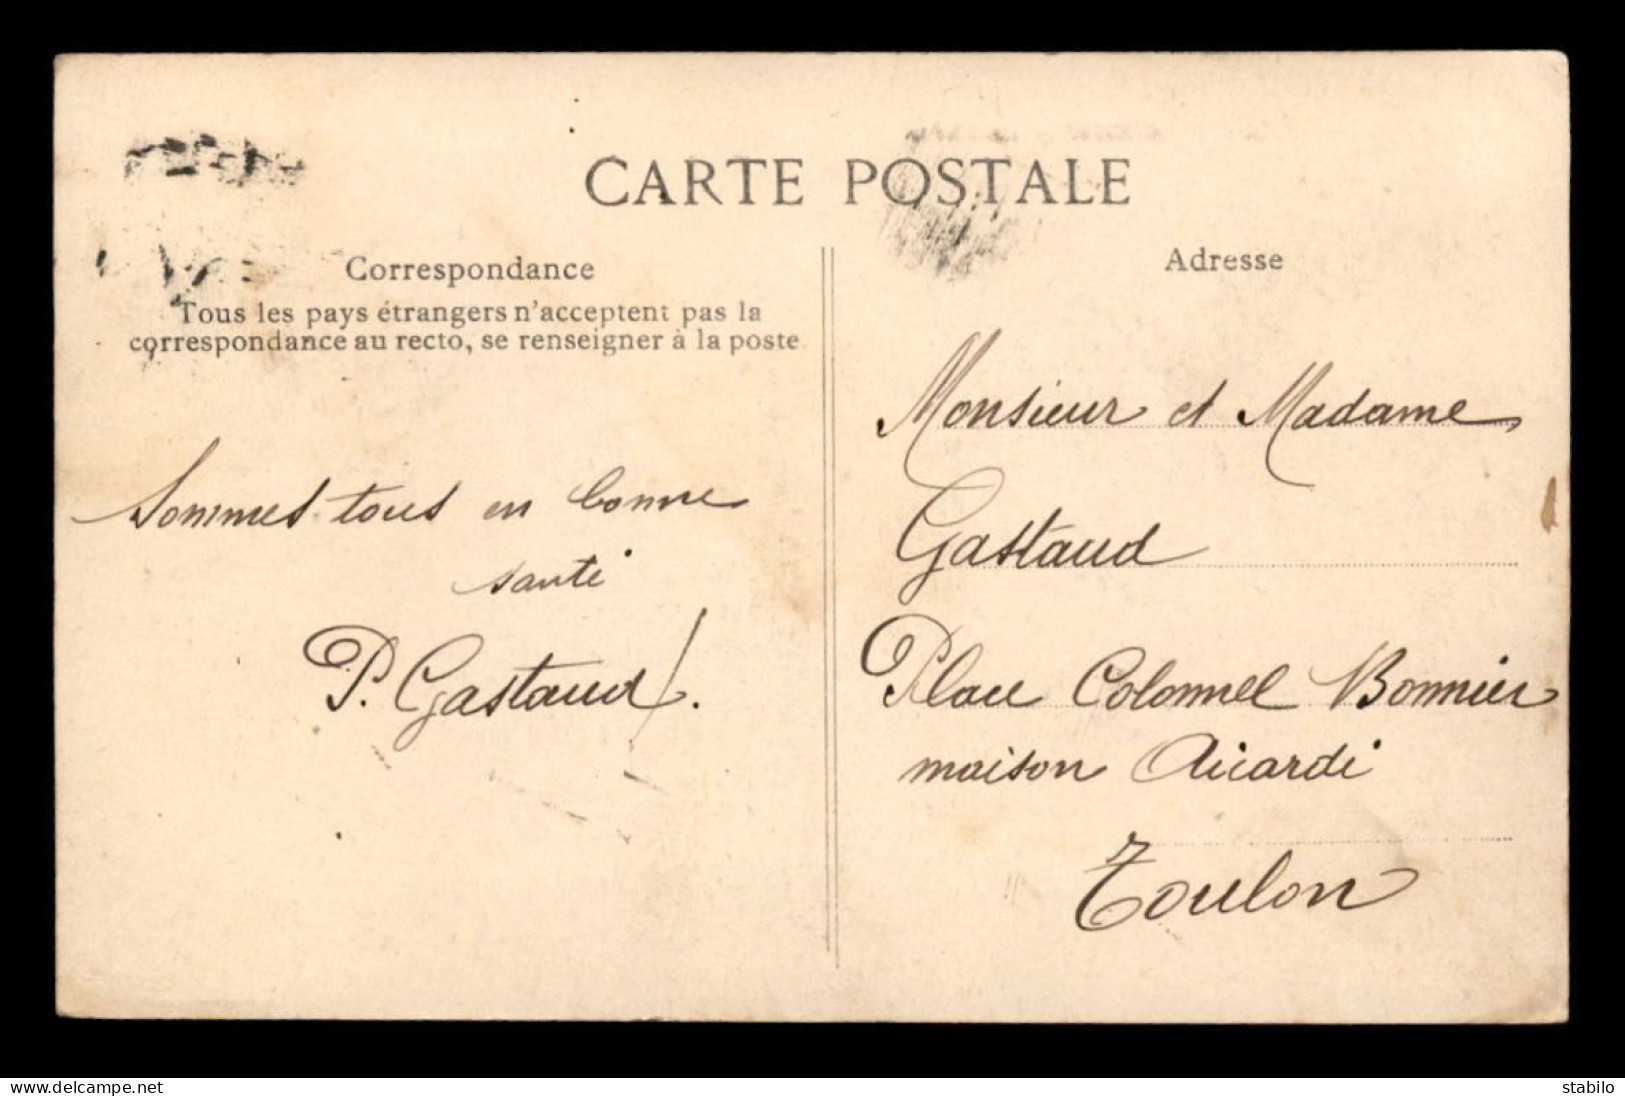 CARTE POSTALE
Correspondance
Tous les pays étrangers n'acceptent pas la
correspondance au recto, se renseigner à la poste.
Sommes tous en bonne
santé
P. Gastaud.
Adresse
Monsieur et Madame
Gastaud
Place Colonnel Bonnier
maison Aicardi
Toulon
www.delcampe.net
stabilo